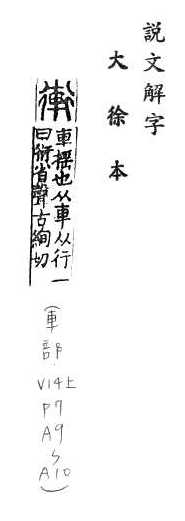 說文解字
大徐本
𨋕
車搖也从車从行一
曰衍省聲古絢切
(車部
V14上
P7
A9
S
A10)